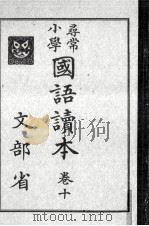 尋常
小學
國語讀本
卷十
文部省
www.ertongbook.com